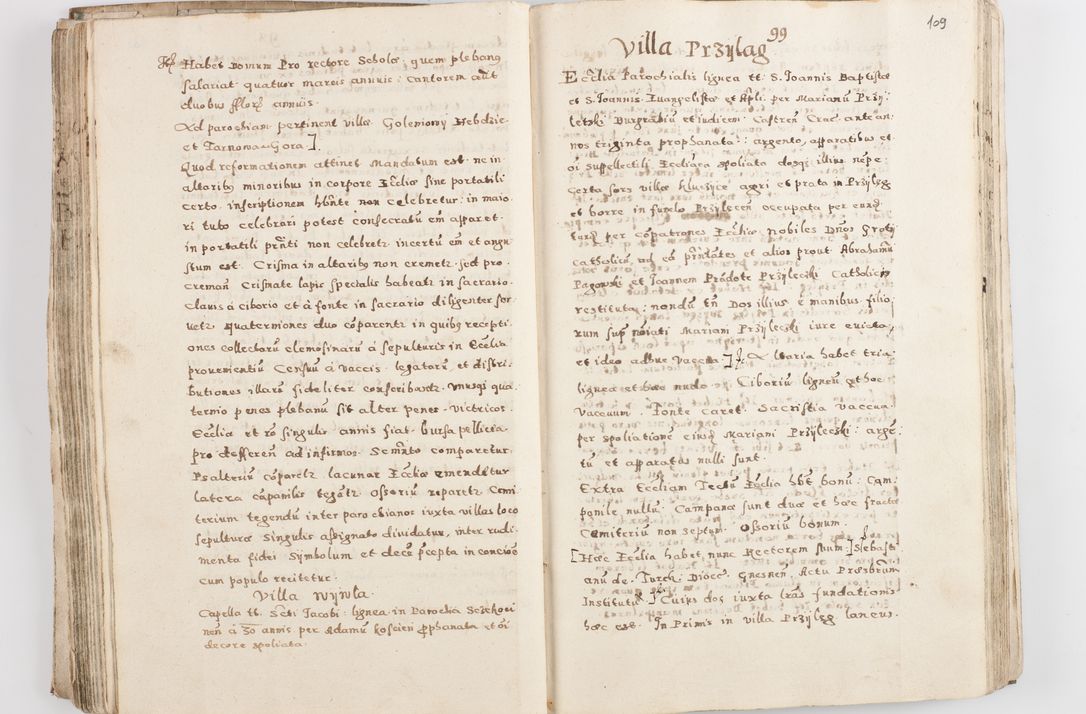 Habet Domum Pro rectore Scholæ; quem plebanus
salariat quatuor marcis annuis: Cantorem aūt
duobus fflor: annuis.
Ad parochiam pertinent villæ Goleniowy Hebdzie
et Tarnowa Gora ]
Quod reformationem attinet Mandatum est ne in
altaribg minoribus in corpore Ecclīæ sine portatili
certo. inscriptionem hbn̄te non celebretur: in maio
ri tuto celebrari potest consecratū em̄ apparet.
in portatili prn̄ti non celebretz incertū em̄ et angu
stum est. Crisma in altaribg non cremetz. sed pro
creman̄ Crismate lapis specialis habeatz in sacrario
Clauis á ciborio et á fonte in sacrario diligenter ser
uetz quaterniones duo cōparentz in quibg recepti
ones collectarū elemosinarū á sepulturis in Ecclīa
prouenientiū Censuū á vaccis. legatarū et distri
butiones illarū fideliter conscribantz. vnusqi qua
ternio penes plebanū sit alter penes victricos.
Ecclīæ et rō singulis annis fiat. bursa pellicea
pro defferen̄ ad infirmos. Semn̄to comparetur.
Psalteriū cōparetz lacunar Ecclīæ emendetur
latera cāpanilis tegātz Ossoriū reparetz Cemi
terium tegendū inter parochianos iuxta villas loco
sepulturæ Singulis assignato diuidatur, inter rudi
menta fidei Symbolum et decē pcepta in concioē
cum populo recitetur.
Villa Wywla.
Capella tt. Scti Jacobi: lignea in Parochia Seczkoci
nen̄ á 30 annis per Adamū koscien pphanata et oī
decore spoliata.
109
99
Villa Przyląg
Ecclīa Parochialis lignea tt: S. Joannis Baptistæ
et S. Joannis Euangelistæ et Apli. per Marianū Przy
leczki Burgrabiū et iudicem Castren̄ Crac: ante an
nos triginta prophanata: argento, apparatibus et
oi suppellectili Ecclīaca spoliata dosqi illius nēpe
certa sors villæ kluszyce agri et prata in Przyląg
et borre in fundo Przylecen̄ occupata per eund
tandē per cōpatrones Ecclīæ nobiles Dn̄os Groty
catholicā, ad eā prīntates et alios prout Abrahamū
Pagowski et Joannem Prēdote Przyleczki Catholicos
restituta; nondū tn̄ Dos illius é manibus filio
rum sup noīati Mariani Przyleczki iure euicta,
et ideo adhuc vaccua ] Altaria habet tria
lignea et hæc nuda. Ciborium ligneū et hoc
vaccuum. Fonte caret. Sacristia vaccua
per spoliationē eiusd Mariani Przyleczki: argē
tū et apparatus nulli sunt.
Extra Eccliam Tectū Ecclīa hbt bonū: Cam
panile nullū. Campanæ sunt duæ et hæc fractæ
Cæmiteriū non septum. Ossoriū bonum.
[Hæc Ecclīa habet nunc Rectorem suum] Slebasti
anū de Turek. Diōc. Gnesnen̄. Actu Præsbrūm
Institutū ] Cuius dos iuxta lrās fundationis
hæc est. In Primis in villa Przyląg laneus.